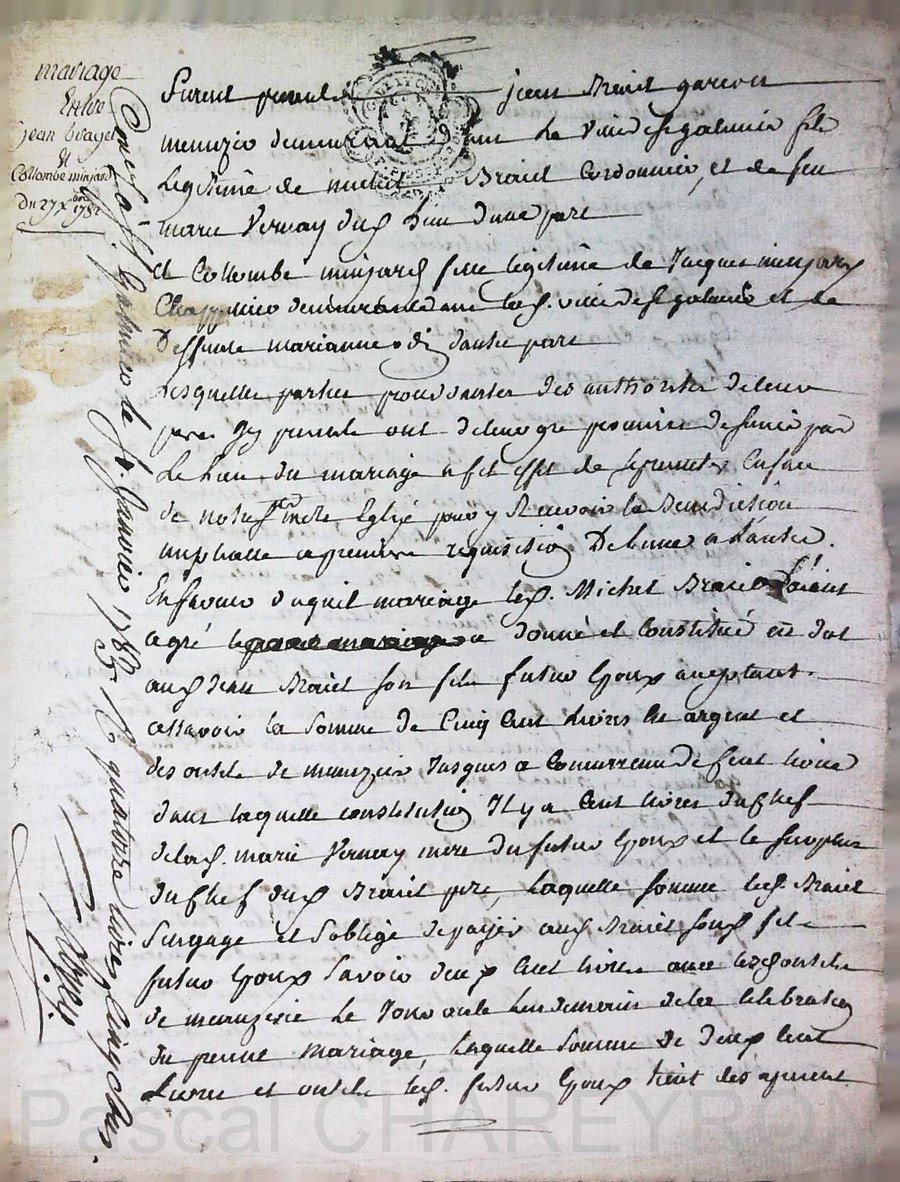 mariage
Entre
jean brayet
et
Collombe minjard
Du 27 xbre 1782
Furent presents jean Brait garcon
menuzier demeurant dans la ville de St galmier fils
Legitime de michel Braiet Cordonnier, et de feu
marie Vernay dud lieu d'une part
et Collombe minjard fille legitime de Jacques minjard
demeurant dans lad. ville de St galmier et de
Deffunte marianne d'autre part
Lesquelles parties des authorités de leur
peres icy presents ont de leur gré promis de s'unir par
Le lien du mariage a cet effet de se presenter en face
de notre Ste mere Eglise pour y Recevoir la Benediction
nuptialle a premiere requisition De l'une a L'autre.
En faveur duquel mariage led. Michel Braiet
agré a donné et constitué en dot
aud Jean Braiet son fils futur Epoux acceptant.
assavoir la somme de Cinq Cent Livres en argent et
des outils de menuzier Jusques a concurrance de Cent livres
dans laquelle constitution Il y a Cent livres du chef
de lad. marie Vernay mere du futur Epoux et le surplus
du chef dud Braiet pere, Laquelle somme led. Braiet
s'engage et s'oblige de payer aud Braiet son fils
futur Epoux savoir deux Cent livres avec lesd outils
de menuzerie Le Jour ou le Lendemain de la Celebration
du present mariage, Laquelle somme de deux Cent
Livres et outils led. futur Epoux
Con.lé a St. Galmier le Janvier 1783 R quatorze livres cinq sols.
Pascal CHAREYRON